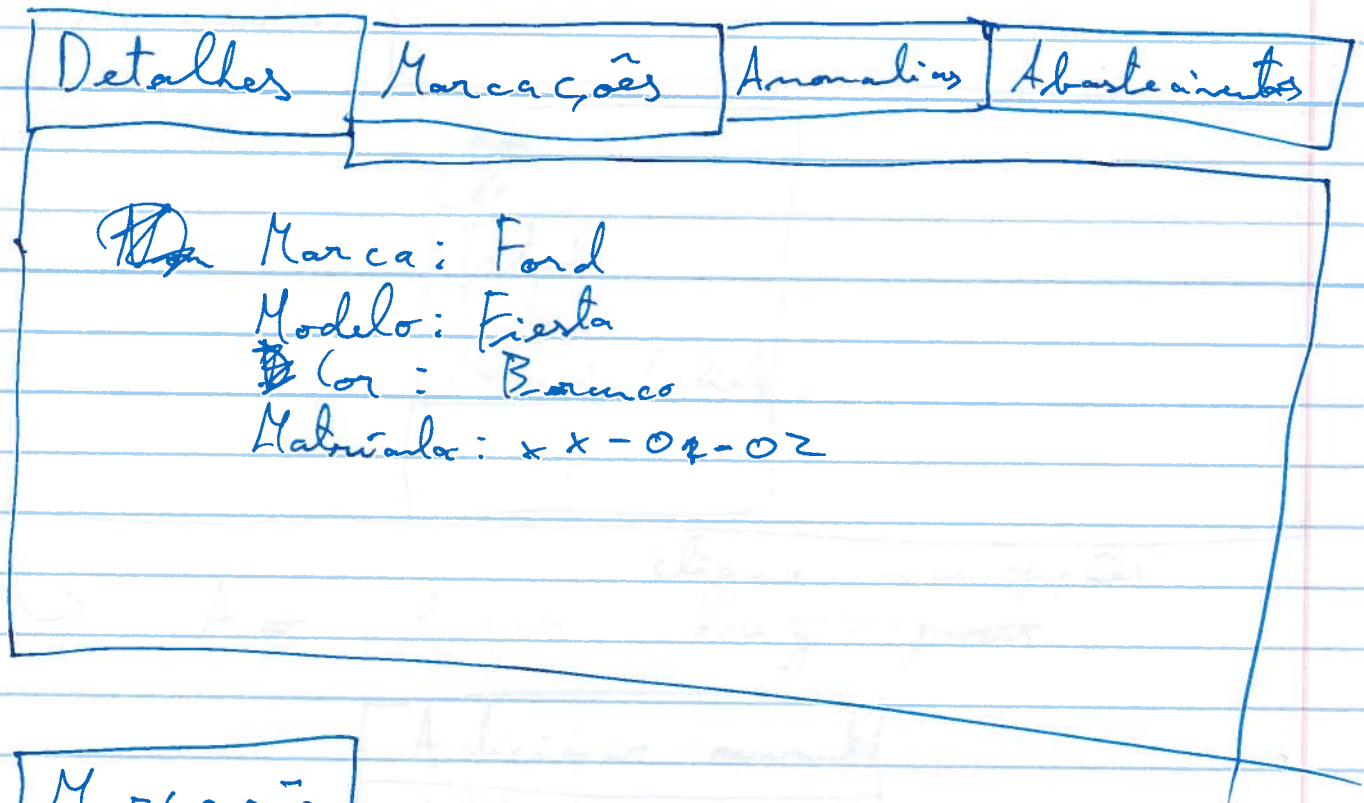 Detalhes Marcações Anomalias Abastecimentos
Marca: Ford
Modelo: Fiesta
Cor: Branco
Matrícula: xx-01-02